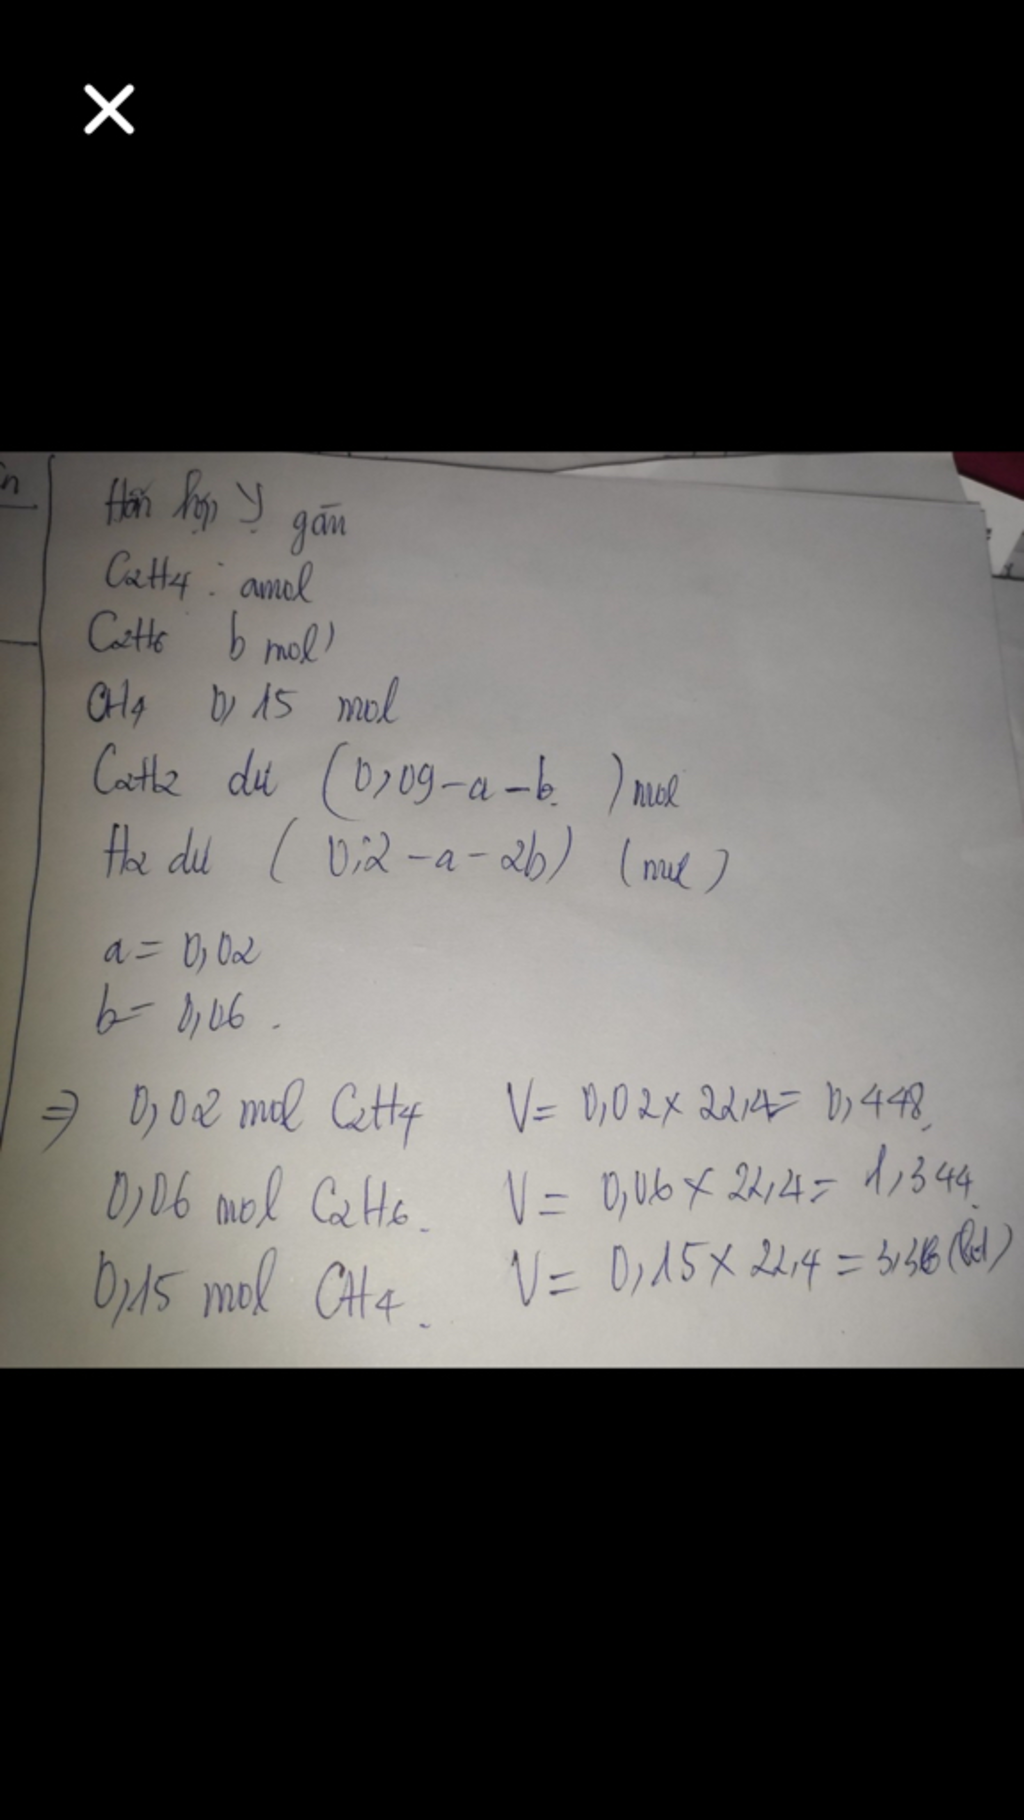 Hỗn hợp Y gồm
C2H4 : amol
C2H6 b mol
CH4 0,15 mol
C2H2 dư (0,09-a-b.) mol
H2 dư (0,2-a-2b) (mol)
a = 0,02
b = 0,06.
=> 0,02 mol C2H4 V= 0,02 x 22,4= 0,448.
0,06 mol C2H6. V= 0,06 x 22,4= 1,344.
0,15 mol CH4. V= 0,15 x 22,4 = 3,36 (lít)